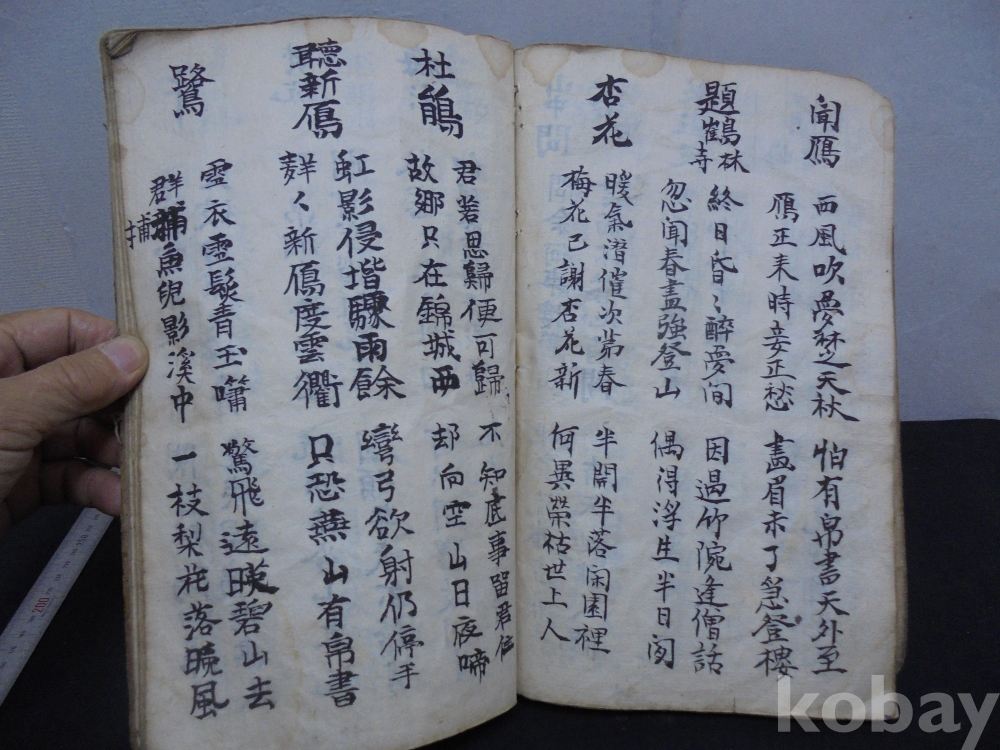 聞鴈
西風吹夢楚天秋
怕有帛書天外至
鴈正来時妾正愁
畵眉未了急登樓
題鶴林寺
終日昏〻醉夢间
因過竹院逢僧話
忽聞春盡強登山
偶得浮生半日闲
杏花
暖氣潛催次苐春
半開半落闲園裡
梅花已謝杏花新
何異榮枯世上人
杜鵑
君若思歸便可歸
不知底事留君住
故郷只在錦城西
却向空山日夜啼
聽新鴈
虹影侵堦驟雨餘
彎弓欲射仍停手
新鴈度雲衢
只恐燕山有帛書
鷺
雪衣雪髮青玉嘴
驚飛遠暎碧山去
群捕魚兒影溪中
捕
一枝梨花落曉風
200
kobay